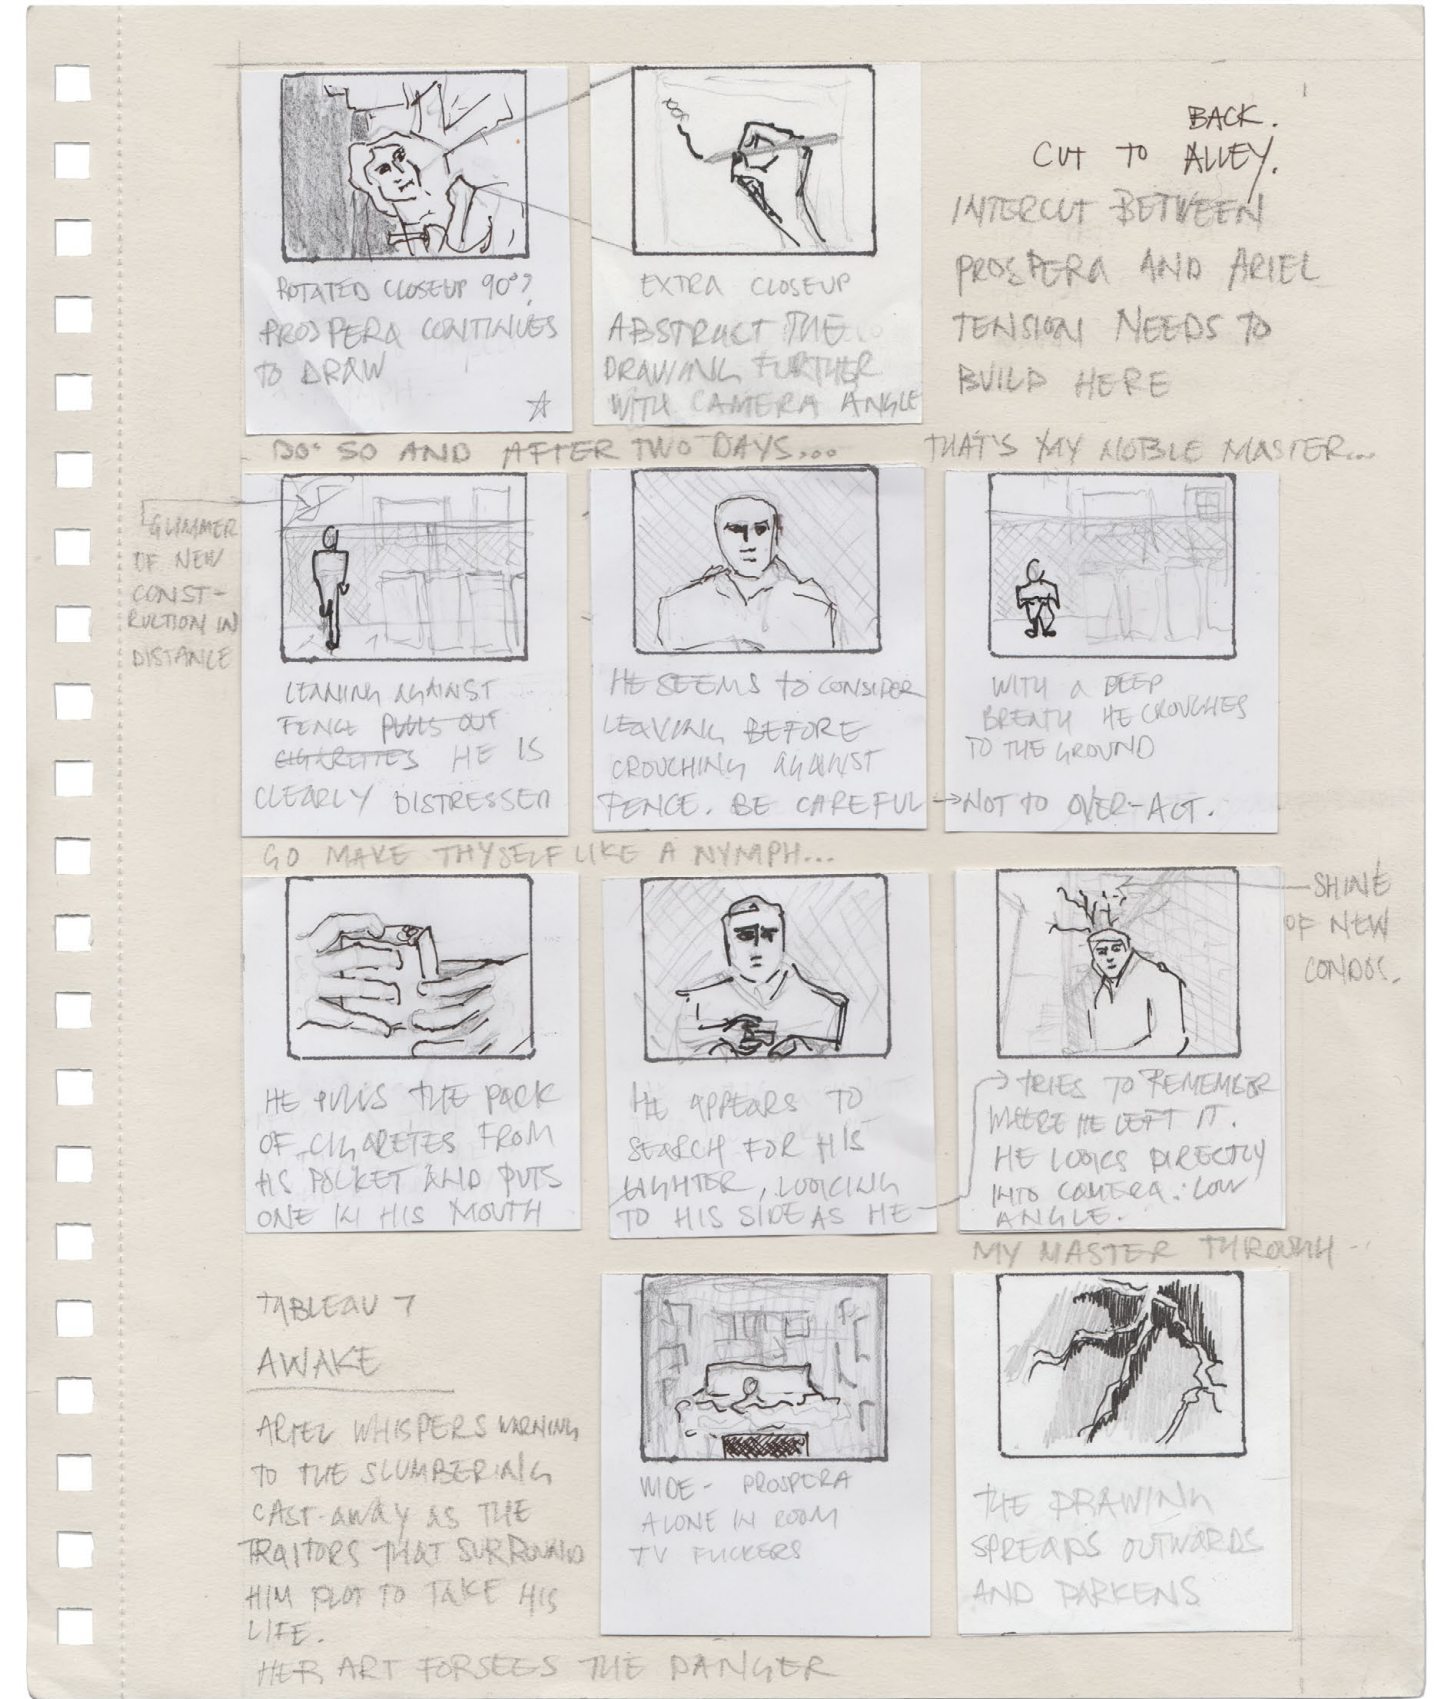 BACK.
CUT TO ALLEY.
INTERCUT BETWEEN
PROSPERA AND ARIEL
TENSION NEEDS TO
BUILD HERE
ROTATED CLOSEUP 90°?
PROSPERA CONTINUES
TO DRAW
EXTRA CLOSEUP
ABSTRACT THE
DRAWING FURTHER
WITH CAMERA ANGLE
DO SO AND AFTER TWO DAYS...
THAT'S MY NOBLE MASTER...
GLIMMER
OF NEW
CONST-
RUCTION IN
DISTANCE
LEANING AGAINST
FENCE PULLS OUT
CIGARETTES HE IS
CLEARLY DISTRESSED
HE SEEMS TO CONSIDER
LEAVING BEFORE
CROUCHING AGAINST
FENCE. BE CAREFUL
WITH A DEEP
BREATH HE CROUCHES
TO THE GROUND
NOT TO OVER-ACT.
GO MAKE THYSELF LIKE A NYMPH...
SHINE
OF NEW
CONDOS.
HE PULLS THE PACK
OF CIGARETES FROM
HIS POCKET AND PUTS
ONE IN HIS MOUTH
HE APPEARS TO
SEARCH FOR HIS
LIGHTER, LOOKING
TO HIS SIDE AS HE
TRIES TO REMEMBER
WHERE HE LEFT IT.
HE LOOKS DIRECTLY
INTO CAMERA: LOW
ANGLE.
MY MASTER THROUGH
TABLEAU 7
AWAKE
ARIEL WHISPERS WARNING
TO THE SLUMBERING
CAST-AWAY AS THE
TRAITORS THAT SURROUND
HIM PLOT TO TAKE HIS
LIFE.
HER ART FORSEES THE DANGER
WIDE - PROSPERA
ALONE IN ROOM
TV FLICKERS
THE DRAWING
SPREADS OUTWARDS
AND DARKENS